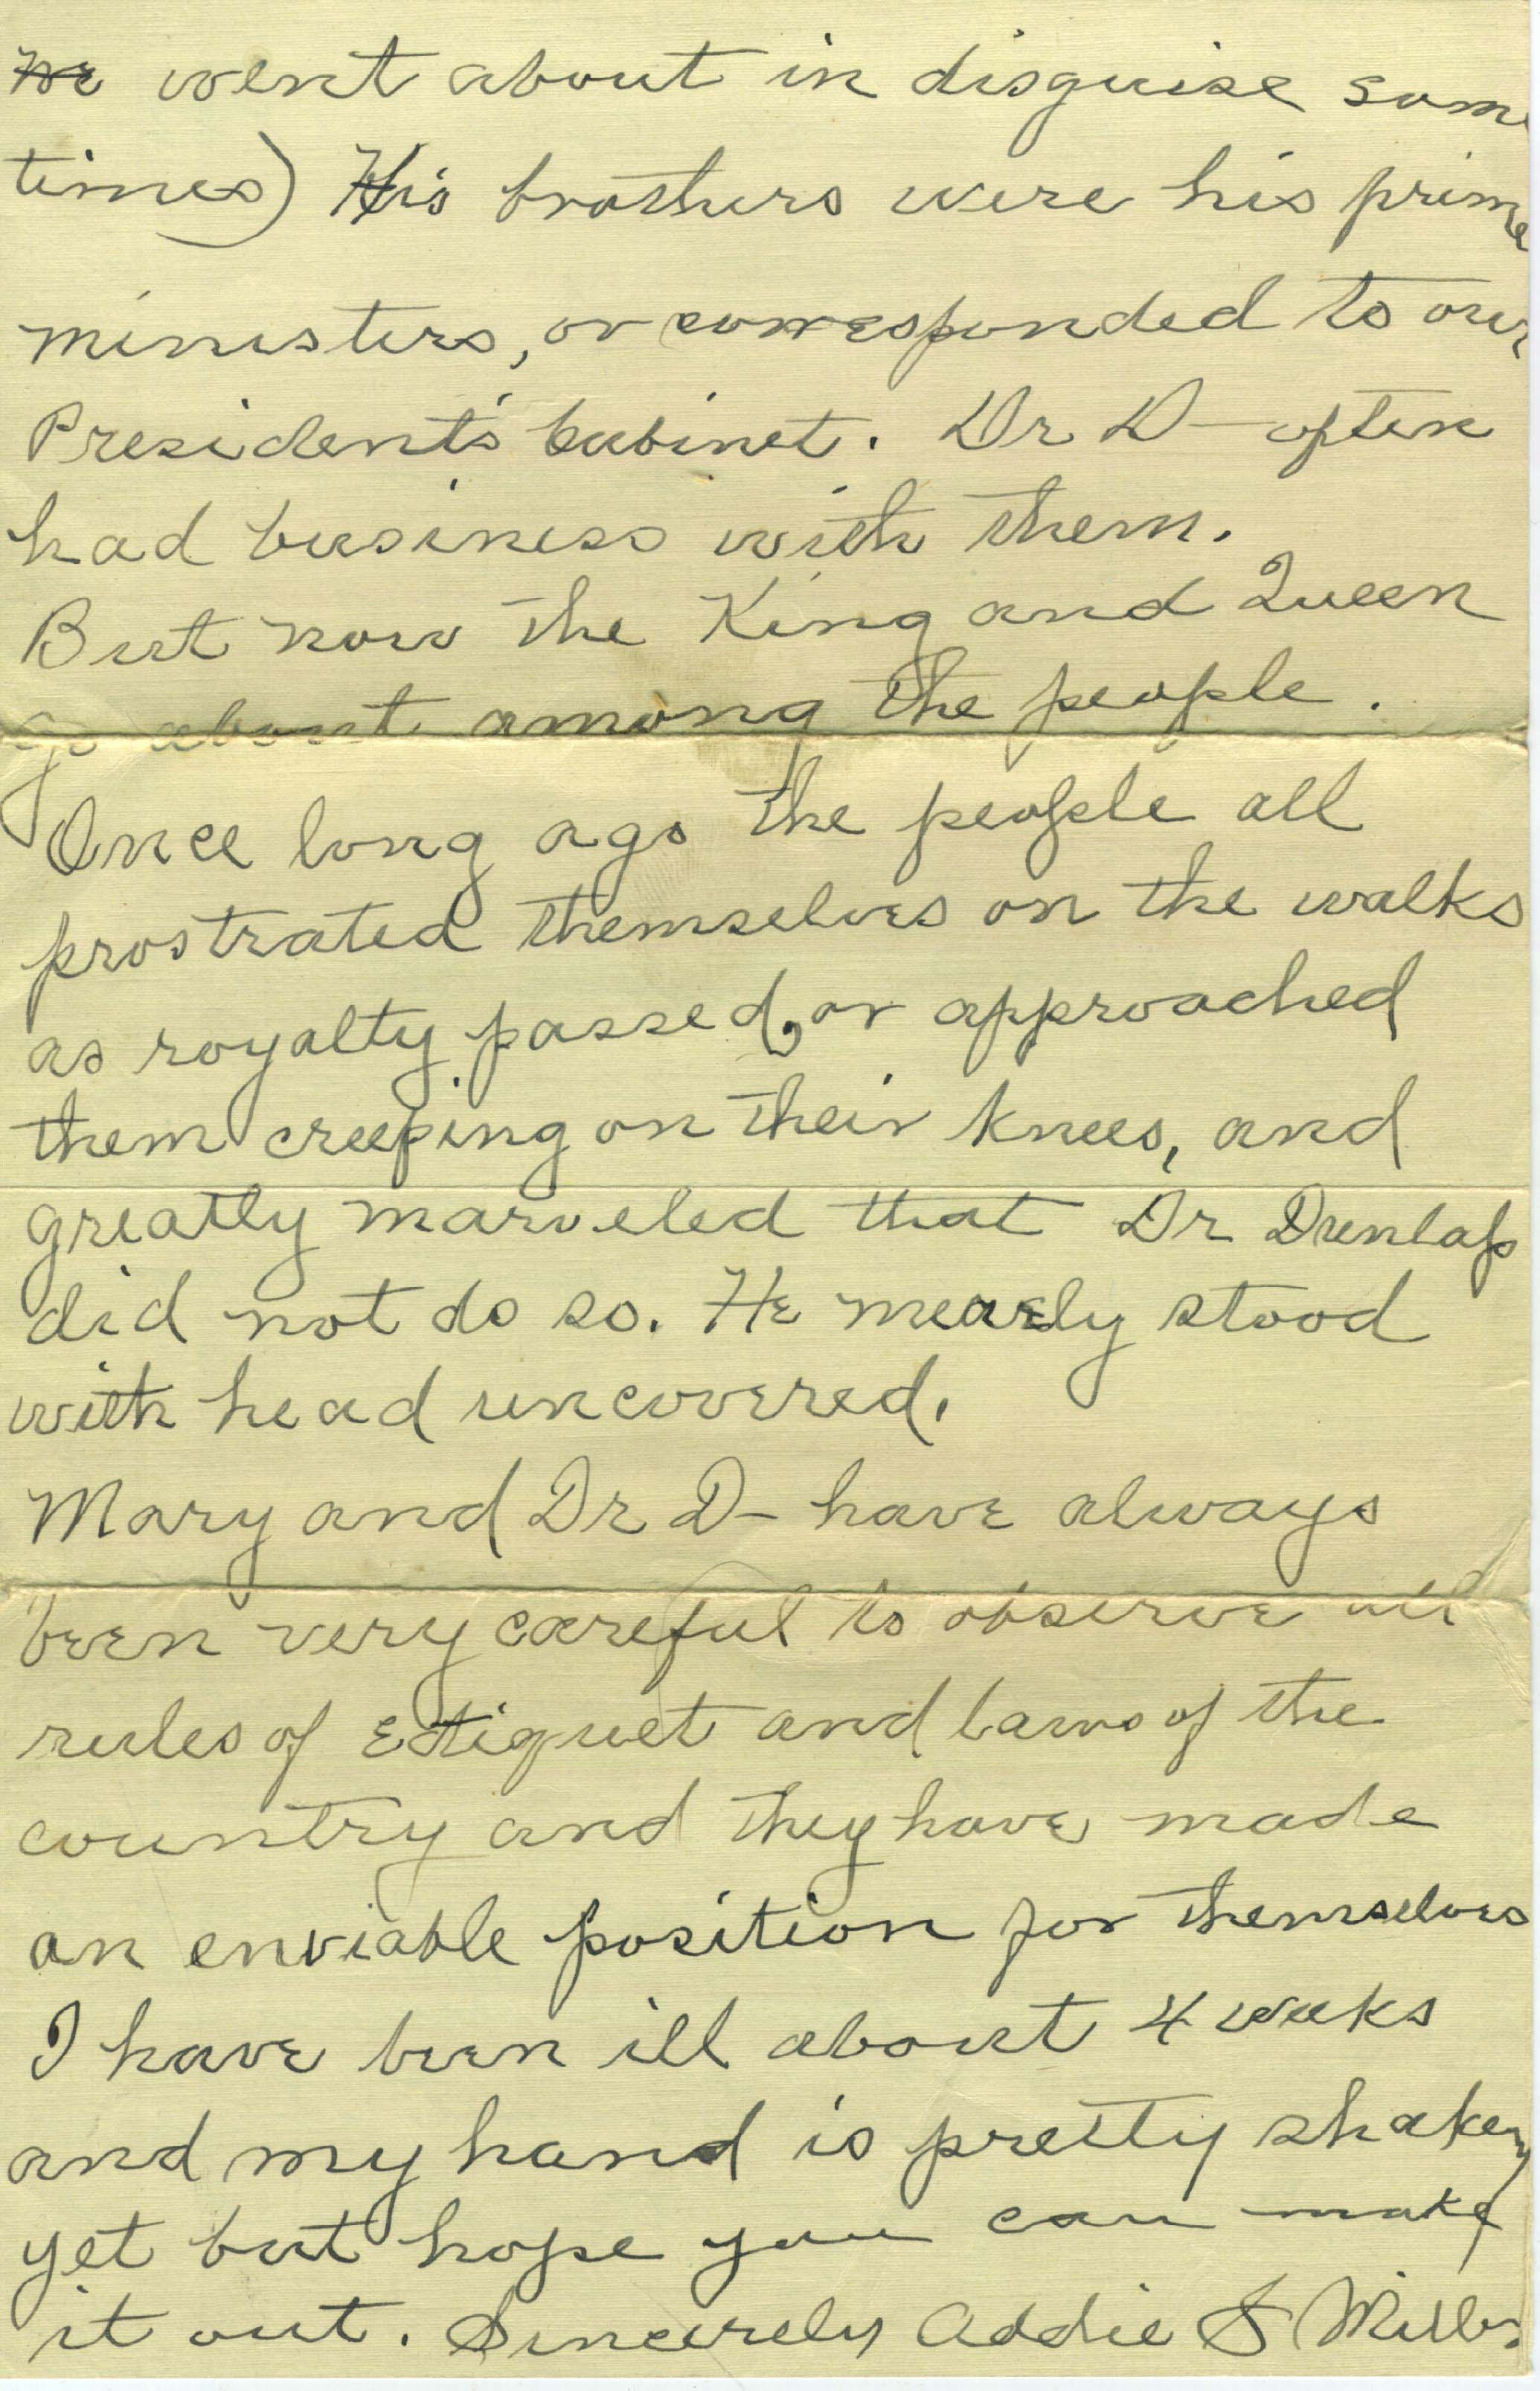 he went about in disguise some
times) His brothers were his prime
ministers, or corresponded to our
President's Cabinet. Dr D— often
had business with them.
But now the King and Queen
go about among the people.
Once long ago the people all
prostrated themselves on the walks
as royalty passed, or approached
them creeping on their knees, and
greatly marveled that Dr Dunlap
did not do so. He mearly stood
with head uncovered.
Mary and Dr D— have always
been very careful to observe all
rules of Etiquet and laws of the
country and they have made
an enviable position for themselves
I have been ill about 4 weeks
and my hand is pretty shakey
yet but hope you can make
it out. Sincerely Addie S